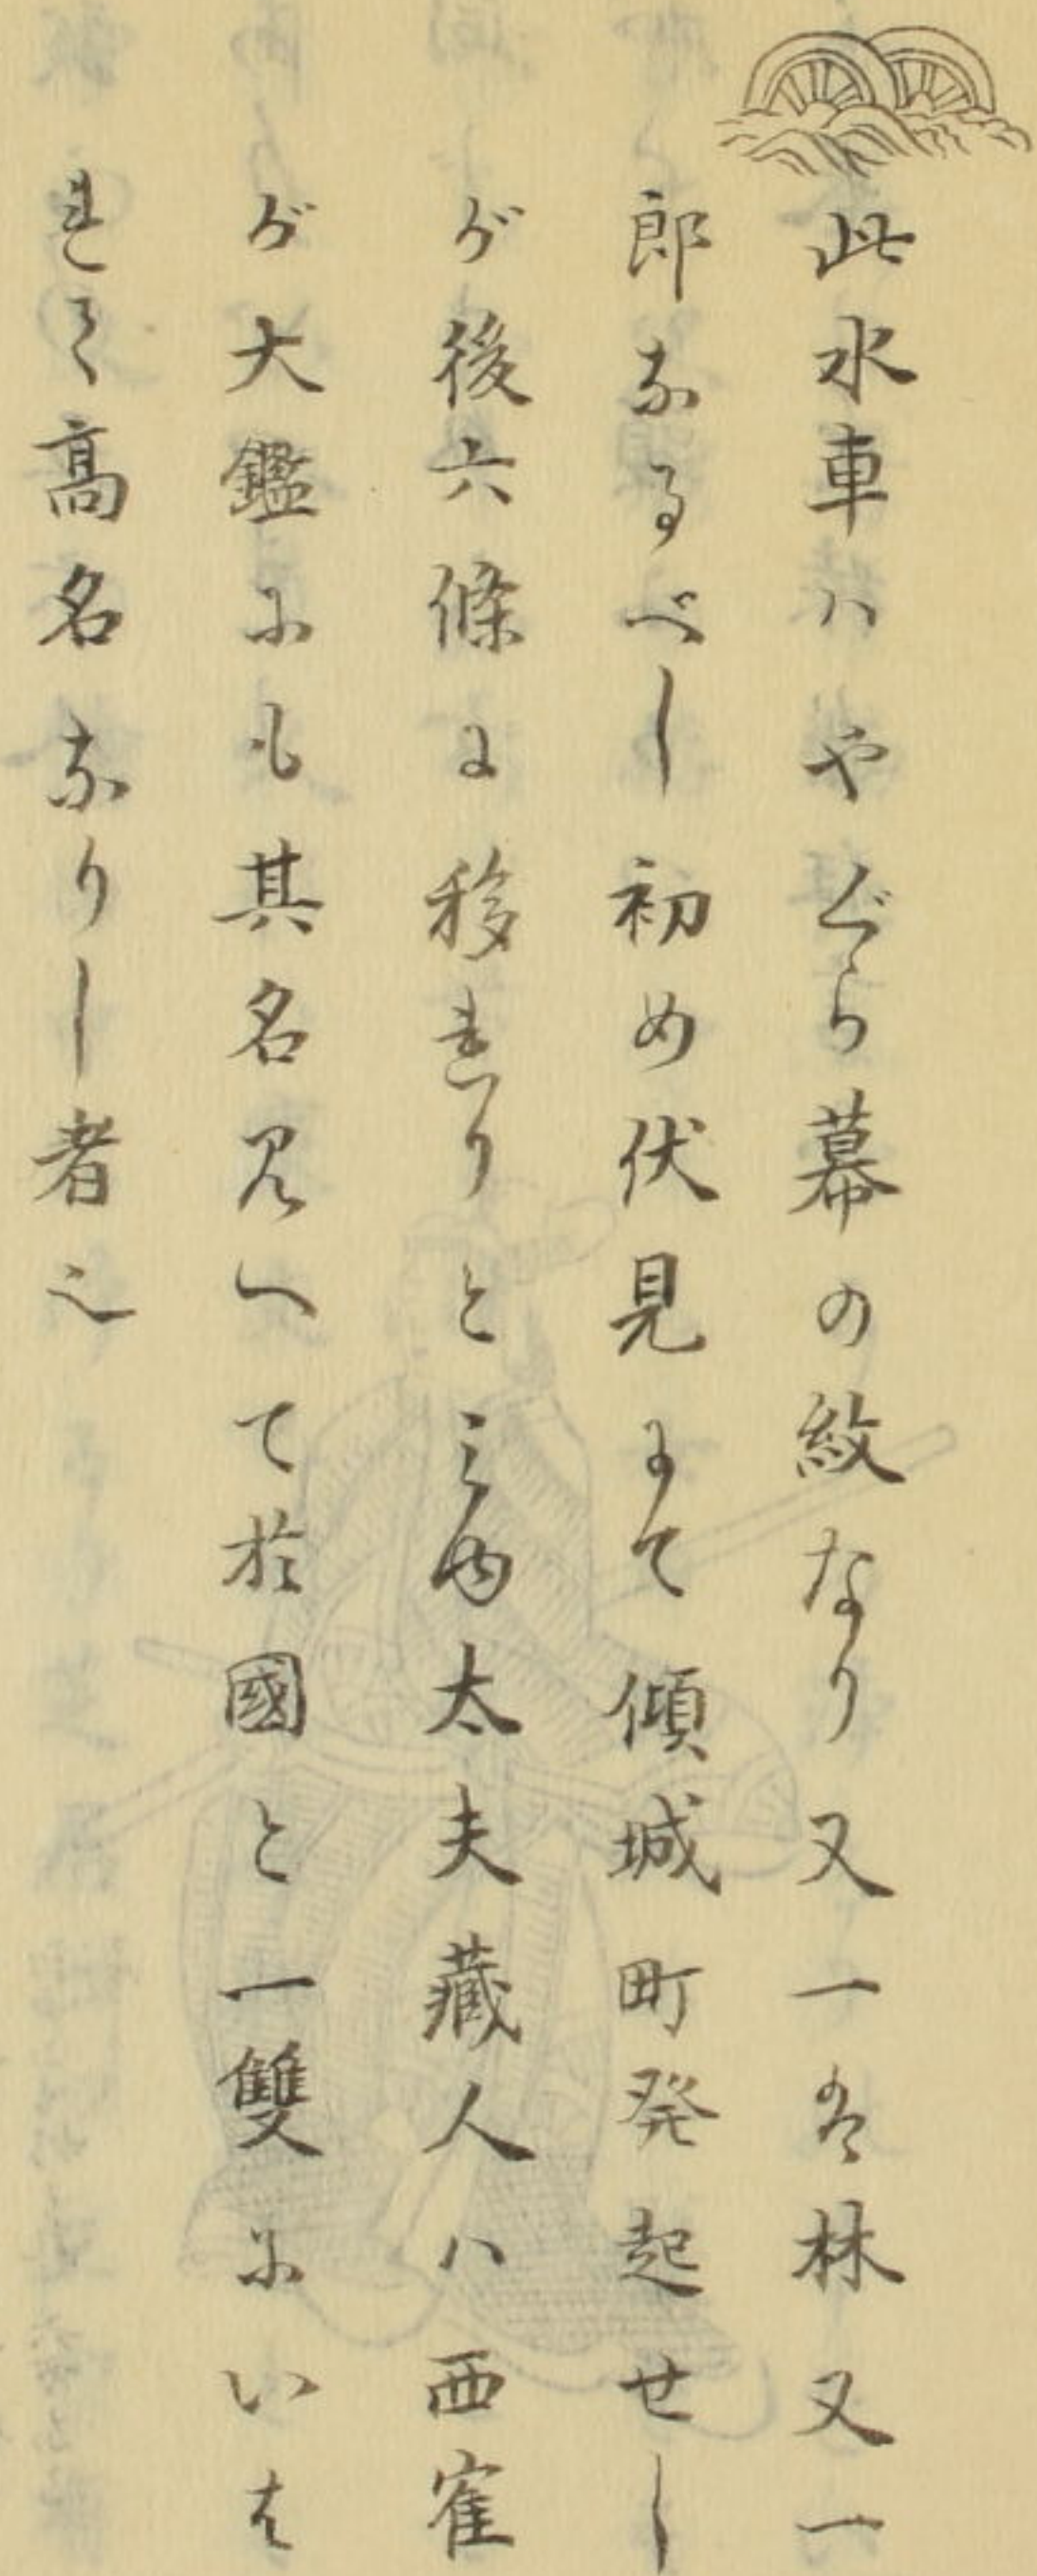 此水車ハやぐら幕の紋なり又一は林又一
郎なるべし初め伏見にて傾城町発起せし
が後六條に移れりとミゆ太夫蔵人ハ西寉
が大鑑にも其名見へて於國と一雙にいは
れて高名なりし者也